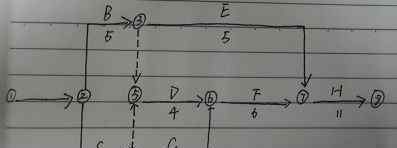 B E
③
5 5
① ② ⑤ D ⑥ F ⑦ H ⑧
4 6 11
C G